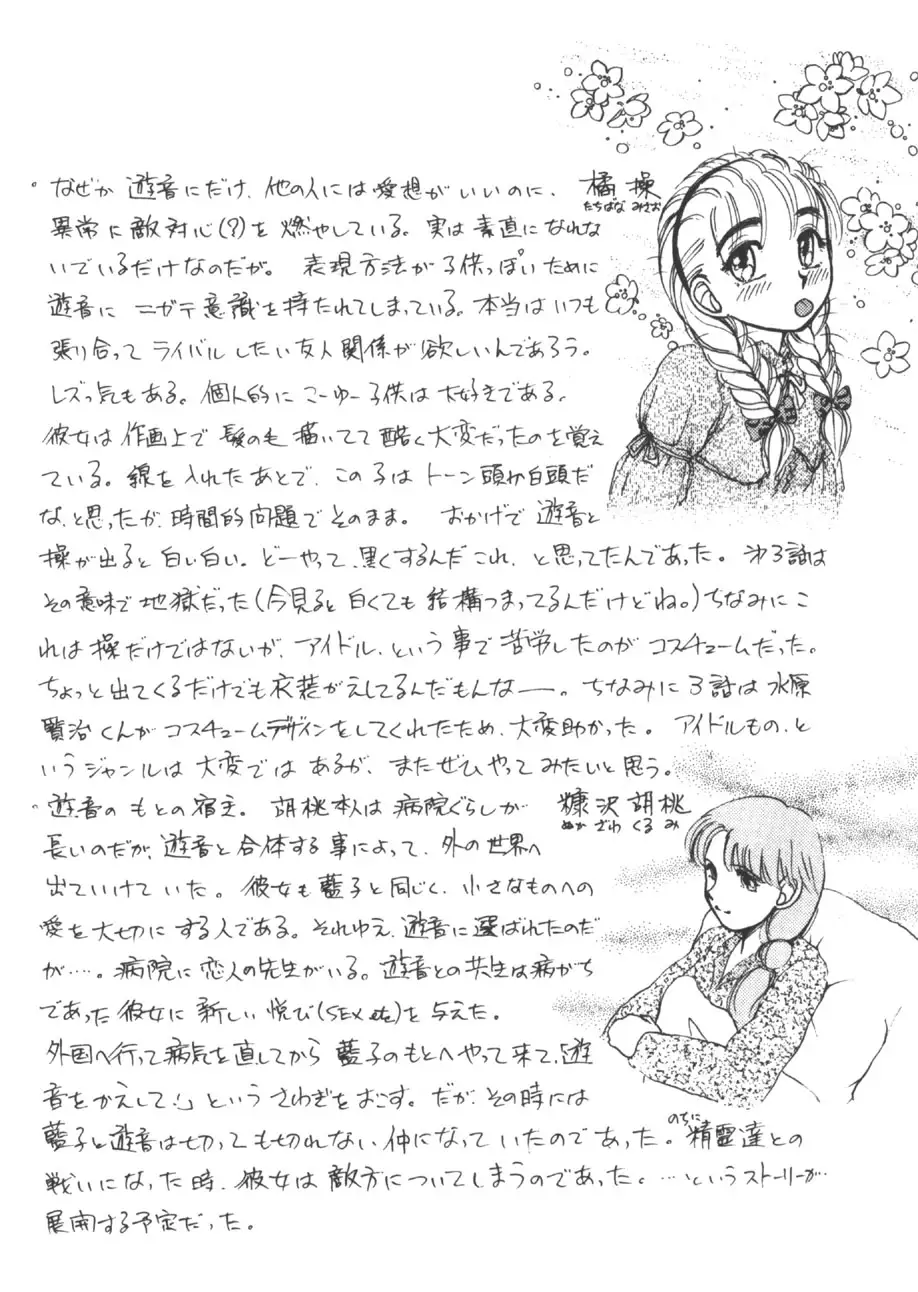 。なぜか 遊音にだけ、他の人には愛想がいいのに、
橘 操
たちばな みさお
異常に敵対心(?)を 燃やしている。実は素直になれな
いでいるだけなのだが。 表現方法が子供っぽいために
遊音に ニガテ意識を持たれてしまっている。本当はいつも
張り合ってライバルしたい友人関係が欲しいんであろう。
レズっ気もある。個人的にこーゆー子供は大好きである。
彼女は作画上で髪の毛描いてて酷く大変だったのを覚え
ている。線を入れたあとで、この子はトーン頭か白頭だ
な、と思ったが、時間的問題でそのまま。 おかげで遊音と
操が出ると白い白い。どーやって、黒くするんだこれ、と思ってたんであった。第3話は
その意味で地獄だった(今見ると白くても結構つまってるんだけどね。)ちなみにこ
れは操だけではないが、アイドル、という事で苦労したのがコスチュームだった。
ちょっと出てくるだけでも衣装がえしてるんだもんなー。ちなみに3話は水原
賢治くんがコスチュームデザインをしてくれたため、大変助かった。アイドルもの、と
いうジャンルは大変ではあるが、またぜひやってみたいと思う。
。遊音のもとの宿主。胡桃本人は病院ぐらしが
糠沢胡桃
ぬかざわ くるみ
長いのだが、遊音と合体する事によって、外の世界へ
出ていけていた。彼女も藍子と同じく、小さなものへの
愛を大切にする人である。それゆえ、遊音に選ばれたのだ
が…。病院に恋人の先生がいる。遊音との共生は病がち
であった彼女に新しい悦び(SEX etc)を与えた。
外国へ行って病気を直してから藍子のもとへやって来て、「遊
音をかえして!」というさわぎをおこす。だが、その時には
藍子と遊音は切っても切れない仲になっていたのであった。のちに精霊達との
戦いになった時、彼女は敵方についてしまうのであった。…というストーリーが
展開する予定だった。